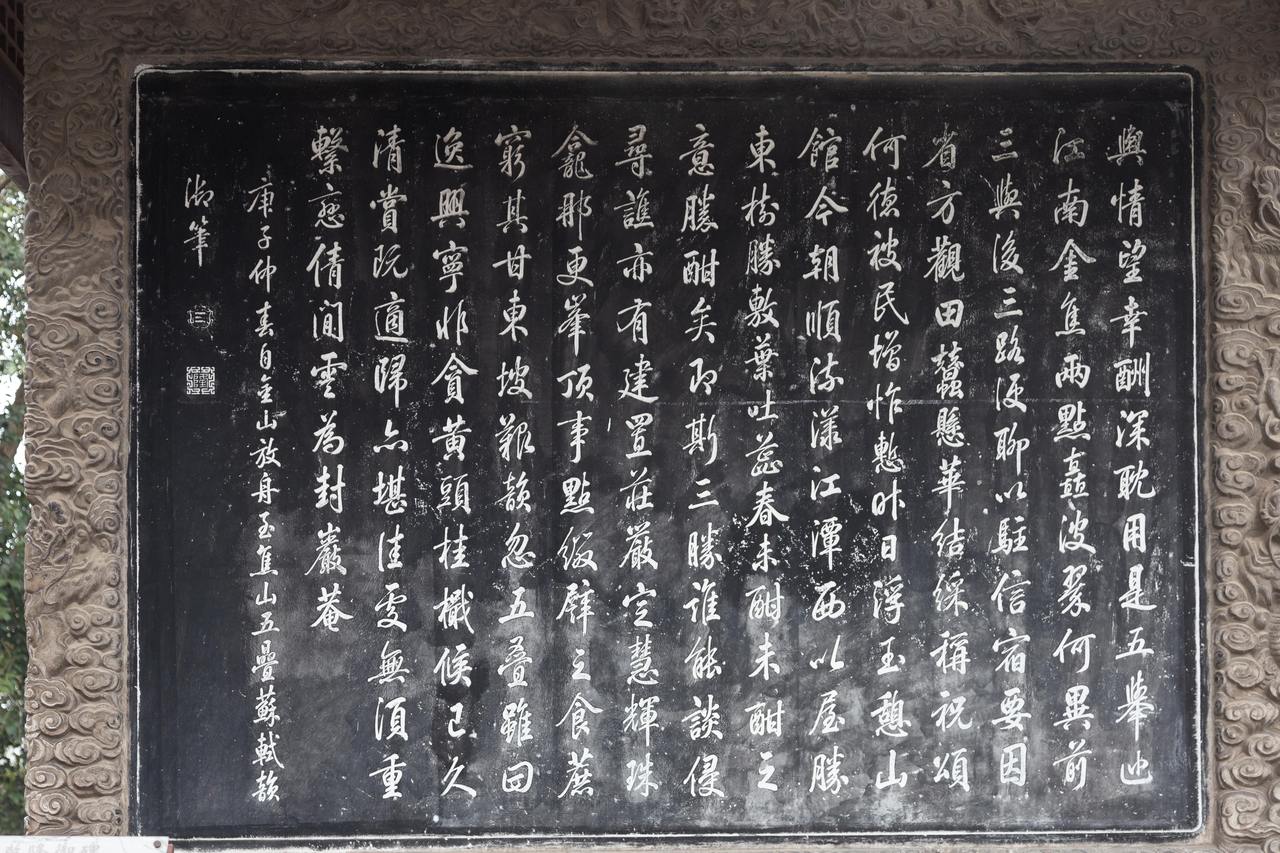 輿情望幸酬深耽用是五舉迆
江南金焦兩點矗波翠何異前
三與後三路便聊以駐信宿要因
省方觀田蠶懸華結綵稱祝頌
何德被民增怍慙昨日浮玉憩山
館今朝順流漾江潭西以屋勝
東樹勝敷葉吐蕊春未酣未酣之
意勝酣矣即斯三勝誰能談侵
尋譙亦有建置莊嚴定慧輝珠
龕那更峯頂事點綴辟之食蔗
窮其甘東坡艱韻忽五疊雖曰
逸興寧非貪黃頭桂檝候已久
清賞阮適歸亦堪佳處無須重
繫戀倩間雲為封巖菴
庚子仲春自金山放舟至焦山五疊蘇軾韻
御筆